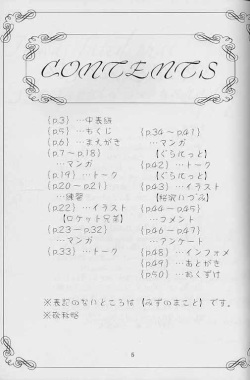 CONTENTS
(p.3) …中表紙
(p.5) …もくじ
(p.6) …まえがき
(p.7~p.18)
…マンガ
(p.19) …トーク
(p.20~p.21)
…練習
(p.22) …イラスト
【ロケット兄弟】
(p.23~p.32)
…マンガ
(p.33) …トーク
(p.34~p.41)
…マンガ
【ぐらたっと】
(p.42) …トーク
【ぐらたっと】
(p.43) …イラスト
(p.44~p.45)
…コメント
(p.46~p.47)
…アンケート
(p.48) …インフォメ
(p.49) …あとがき
(p.50) …おくずけ
※表記のないところは【みずのまこと】です。
※敬称略
5